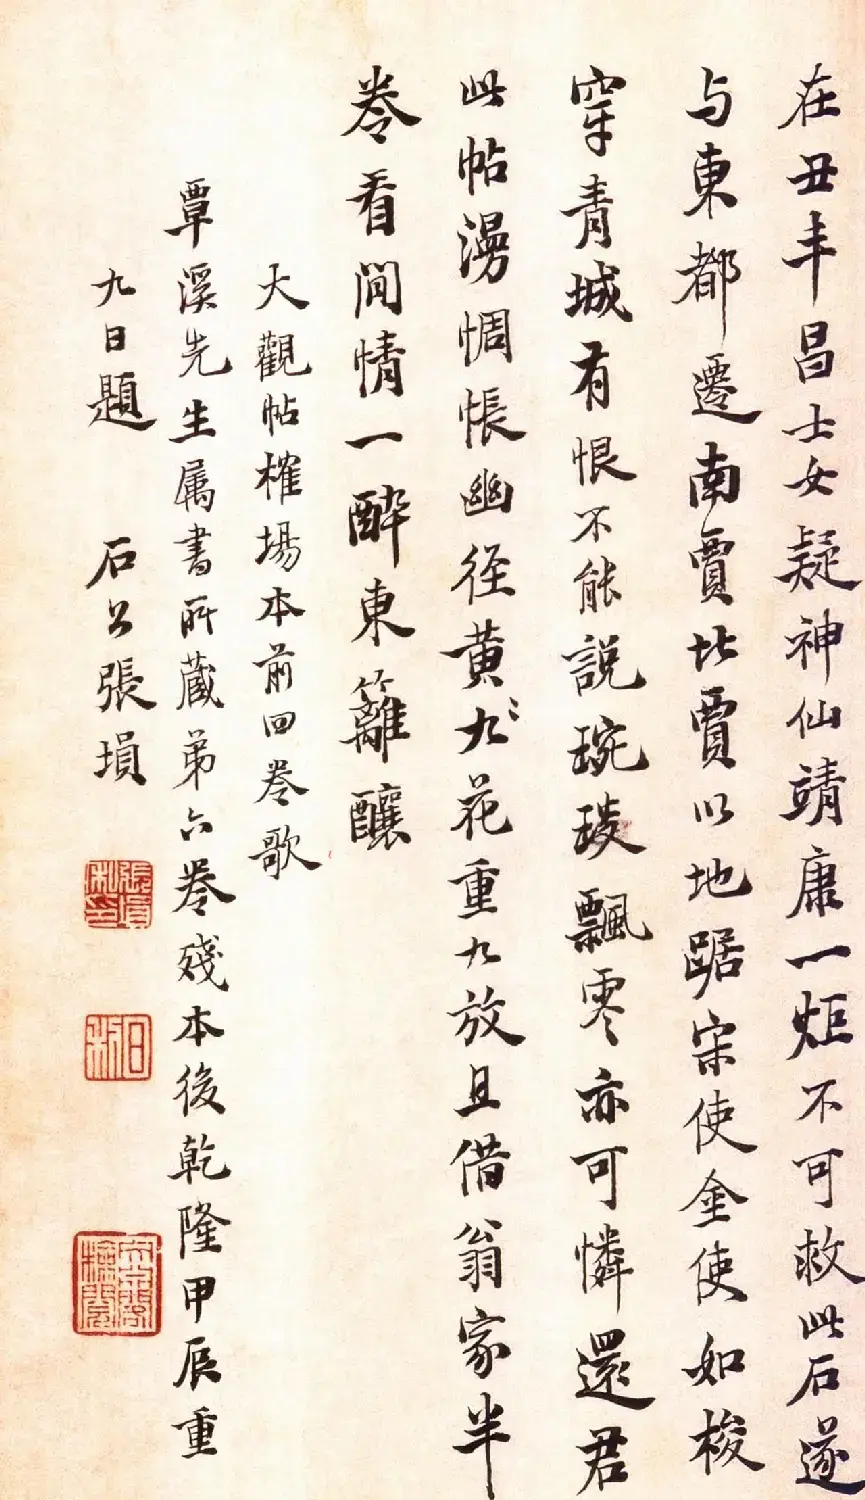 在丑丰昌士女疑神仙靖康一炬不可救此石遂
与東都遷南賈北賈以地踞宋使金使如梭
穿青城有恨不能說琬琰飄零亦可憐還君
此帖漫惆悵幽徑黄九花重九放且借翁家半
卷看间情一醉東籬釀
大觀帖榷場本前四卷歌
覃溪先生属書所藏弟六卷殘本後乾隆甲辰重
九日題 石公張塤
張塤私印